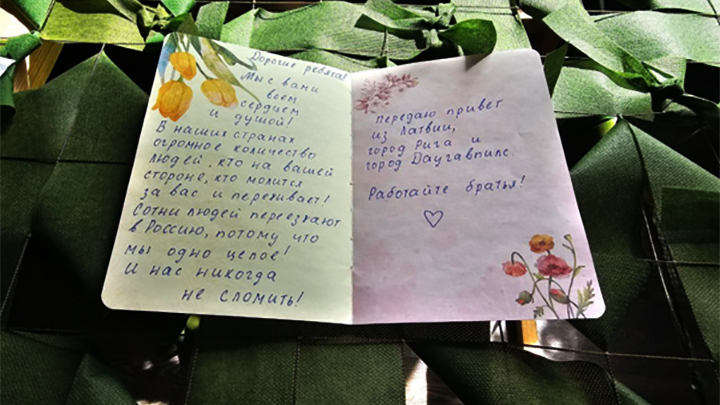 Дорогие ребята!
Мы с вами
всем
сердцем
и душой!
В наших странах
огромное количество
людей, кто на вашей
стороне, кто молится
за вас и переживает!
Сотни людей переезжают
в Россию, потому что
мы одно целое!
И нас никогда
не сломить!
Передаю привет
из Латвии,
город Рига и
город Даугавпилс.
Работайте братья!